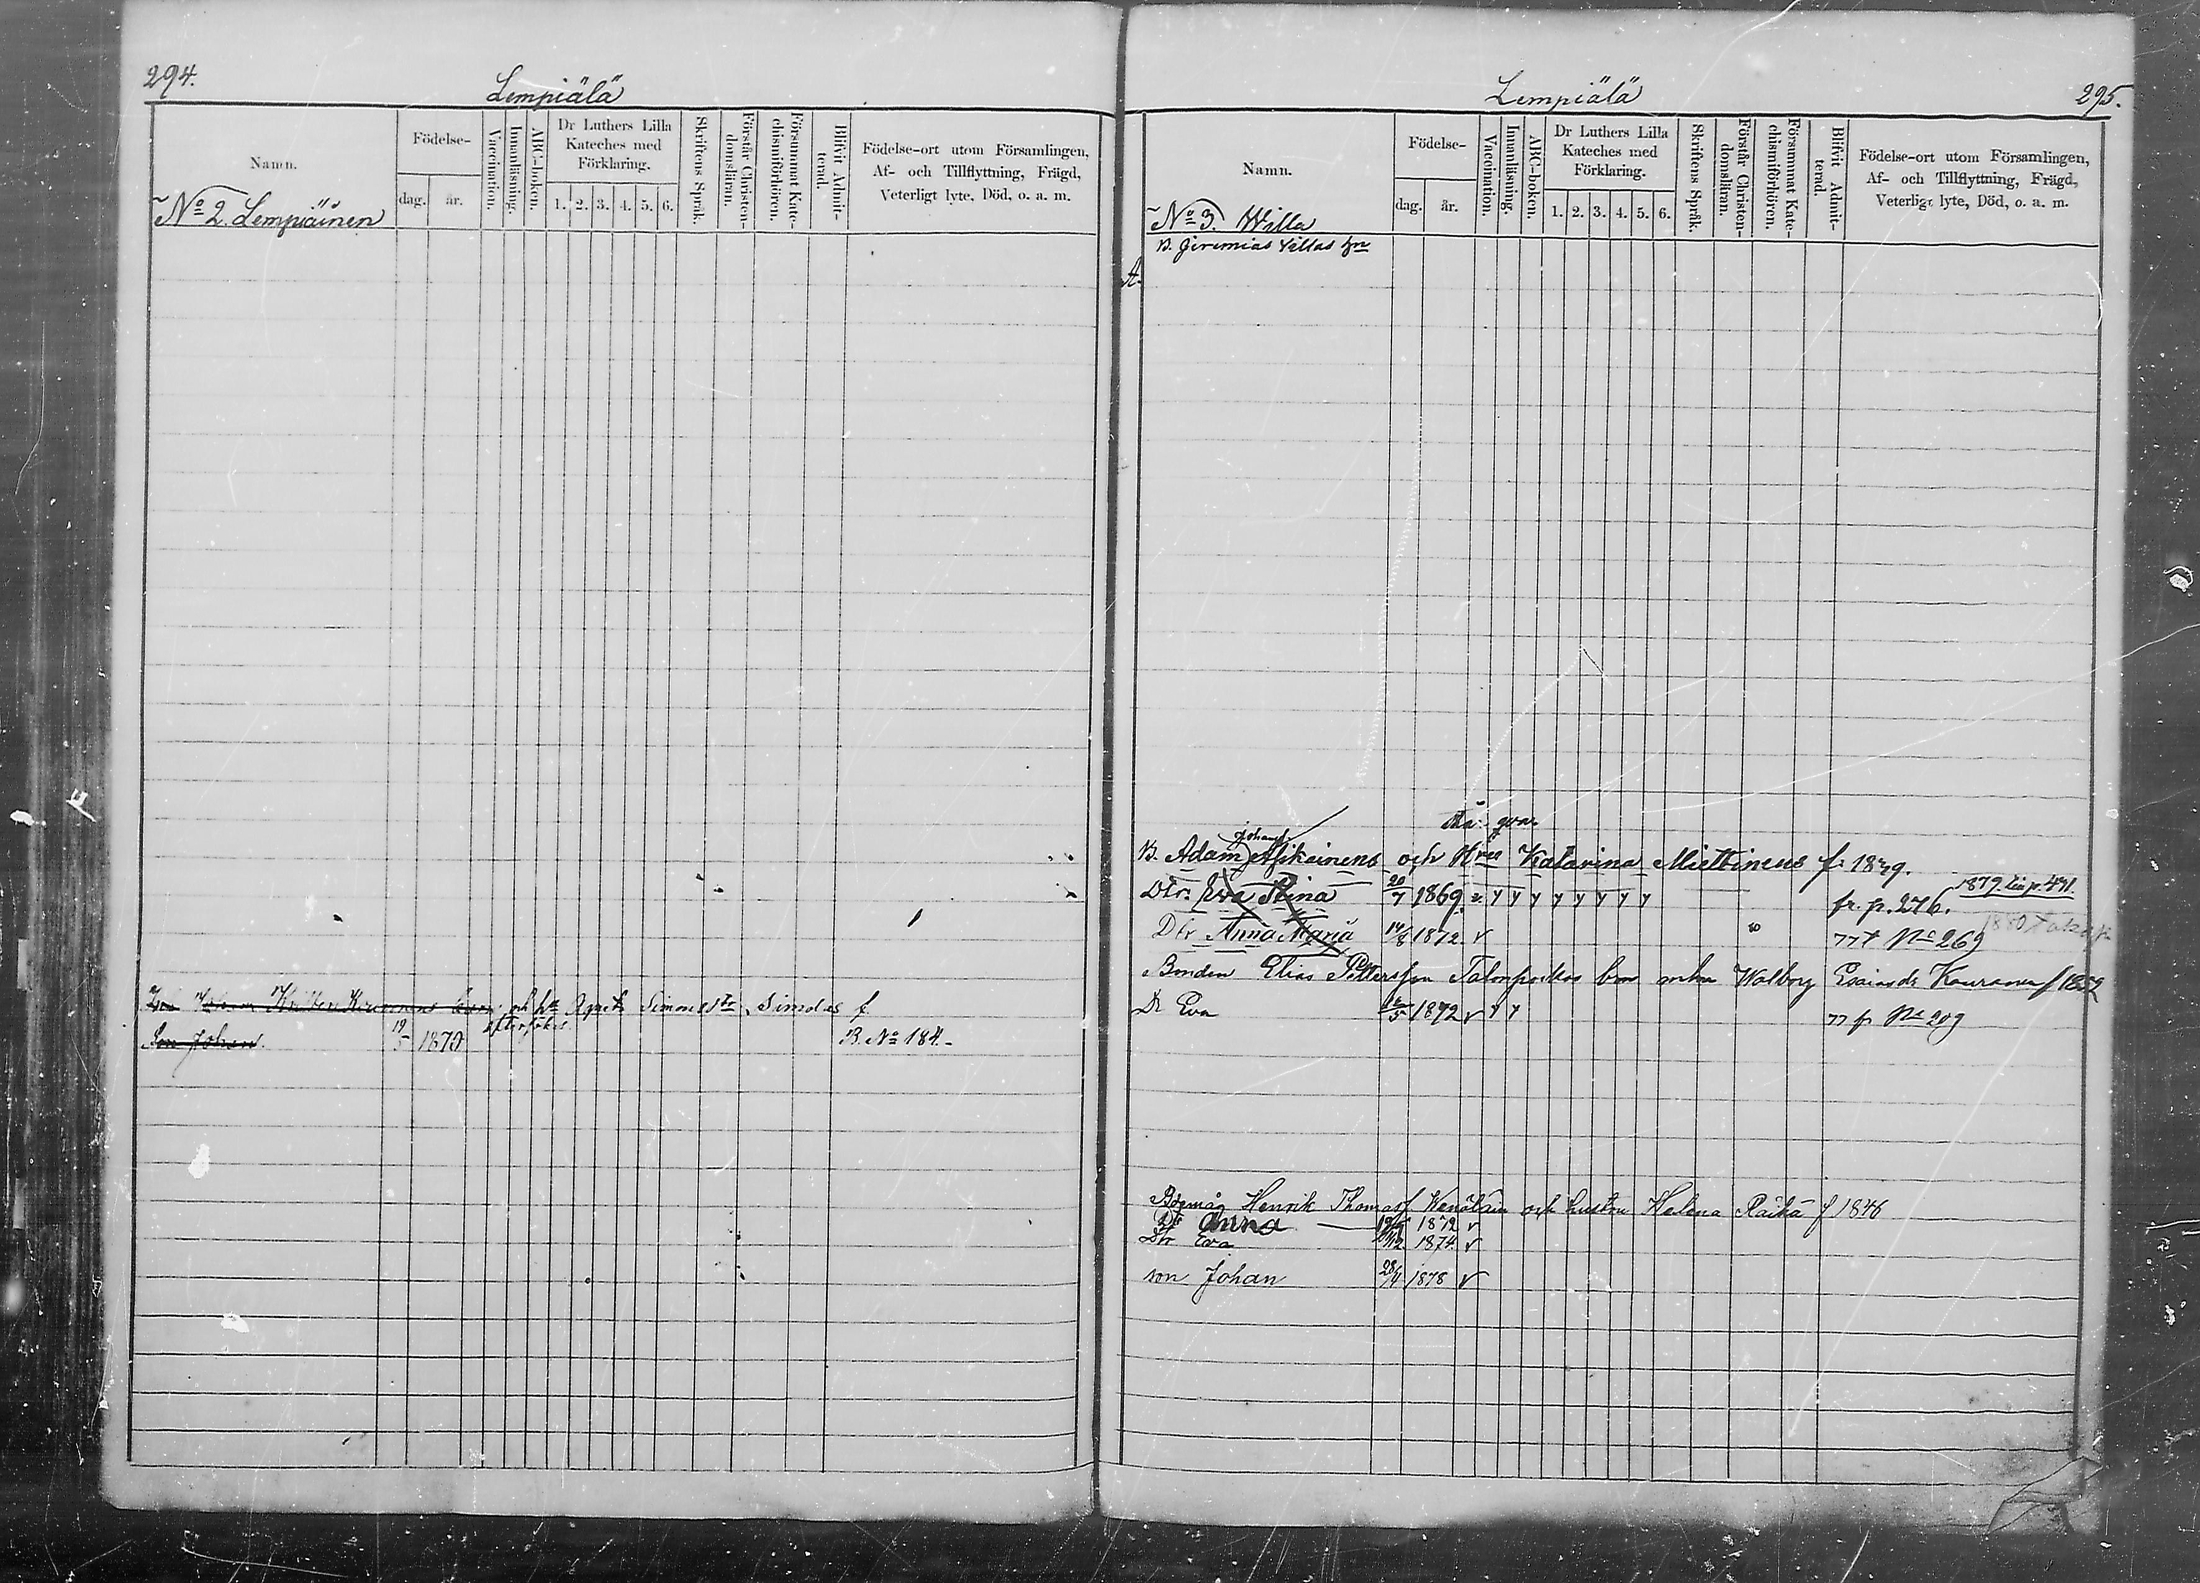 294.
Lempiälä
Namn.
Födelse-
dag.
år.
Vaccination.
Innanläsning.
ABC-boken.
Dr Luthers Lilla
Kateches med
Förklaring.
1. 2. 3. 4. 5. 6.
Skriftens Språk.
Förstår Christen-
domsläran.
Försummat Kate-
chismiförhören.
Blifvit Admit-
terad.
Födelse-ort utom Församlingen,
Af- och Tillflyttning, Frägd,
Veterligt lyte, Död, o. a. m.
No 2. Lempiäinen
och Simonsdr f
Son Johan. 19/5 1870 B. No 184.
Lempiälä
295.
Namn.
Födelse-
dag.
år.
Vaccination.
Innanläsning.
ABC-boken.
Dr Luthers Lilla
Kateches med
Förklaring.
1. 2. 3. 4. 5. 6.
Skriftens Språk.
Förstår Christen-
domsläran.
Försummat Kate-
chismiförhören.
Blifvit Admit-
terad.
Födelse-ort utom Församlingen,
Af- och Tillflyttning, Frägd,
Veterligt lyte, Död, o. a. m.
No 3. Willa
B. Jeremias Villas
A.
Johans.
B. Adam och Katarina Miettinens f.
Dtr. Eva Stina 20/7 1869 v. y y y y y y y y fr. p. 276. 1879
Dtr Anna Maria 1872 v No 269
Bonden Elias Pettersson Walborg Esaiasdr f 1852
Dr Eva 1872 v y y No 209
Henrik Thomass och hustru Helena Räikä f 1846
Dr Anna 1872 v
Dtr Eva 1874 v
son Johan 28/4 1878 v